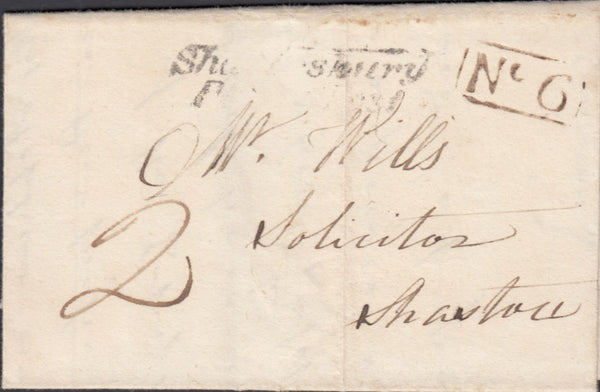 Shaftesbury
Penny Post
No 6
Mr. Wills
Solicitor
2
Shaston